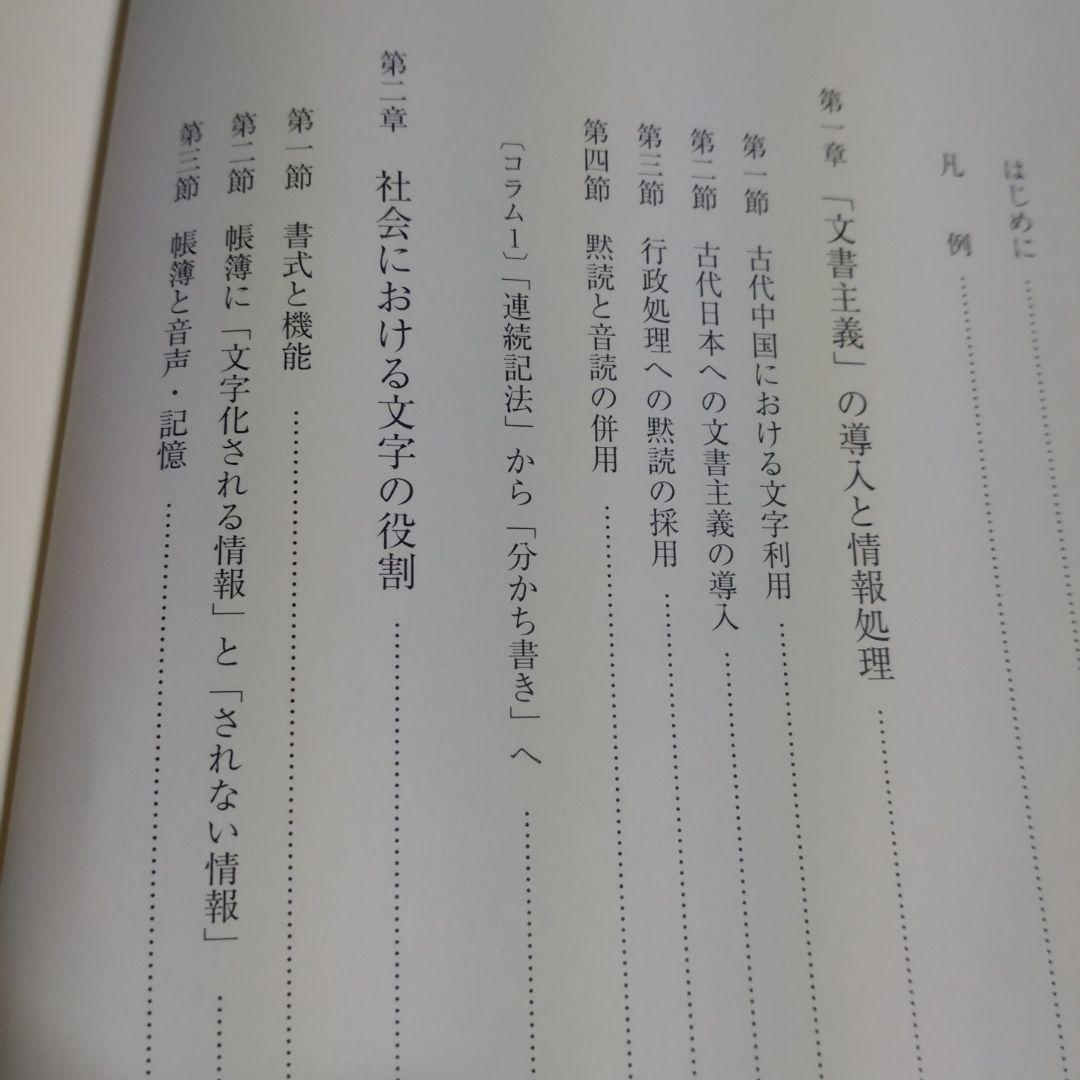 はじめに
凡例
第一章 「文書主義」の導入と情報処理
第一節 古代中国における文字利用
第二節 古代日本への文書主義の導入
第三節 行政処理への黙読の採用
第四節 黙読と音読の併用
〔コラム1〕「連続記法」から「分かち書き」へ
第二章 社会における文字の役割
第一節 書式と機能
第二節 帳簿に「文字化される情報」と「されない情報」
第三節 帳簿と音声・記憶